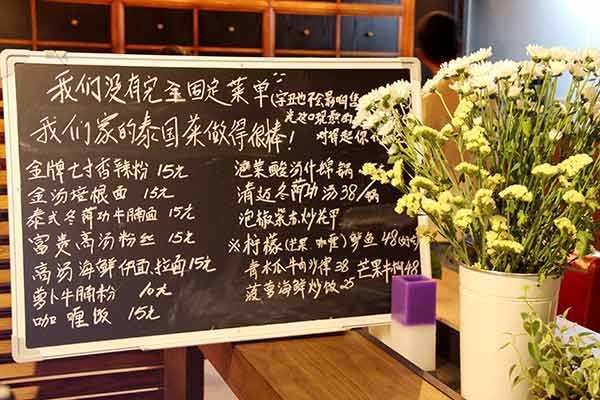 我们没有完全固定菜单(字丑也不会影响售
我们家的泰国菜做得很棒!
对得起你
金牌七寸香辣粉 15元
金汤垃根面 15元
泰式冬荫功牛腩面 15元
富贵高汤粉丝 15元
高汤海鲜伊面、拉面 15元
萝卜牛腩粉 10元
咖喱饭 15元
泡菜酸汤什锦锅
清迈冬荫功汤 38/锅
泡椒 炒花甲
※柠檬(芒果、咖喱)鱿鱼 48
青木瓜牛肉沙律 38 芒果牛柳 48
菠萝海鲜炒饭 25